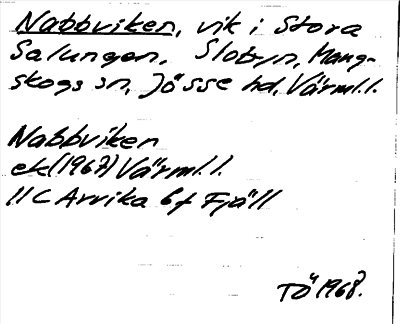 Nabbviken, vik i Stora
Salungen, Slobyn, Mang-
skogs sn, Jösse hd, Värml.l.
Nabbviken
ek (1967) Värml.l.
11C Arvika 6f Fjäll
TÖ 1968.